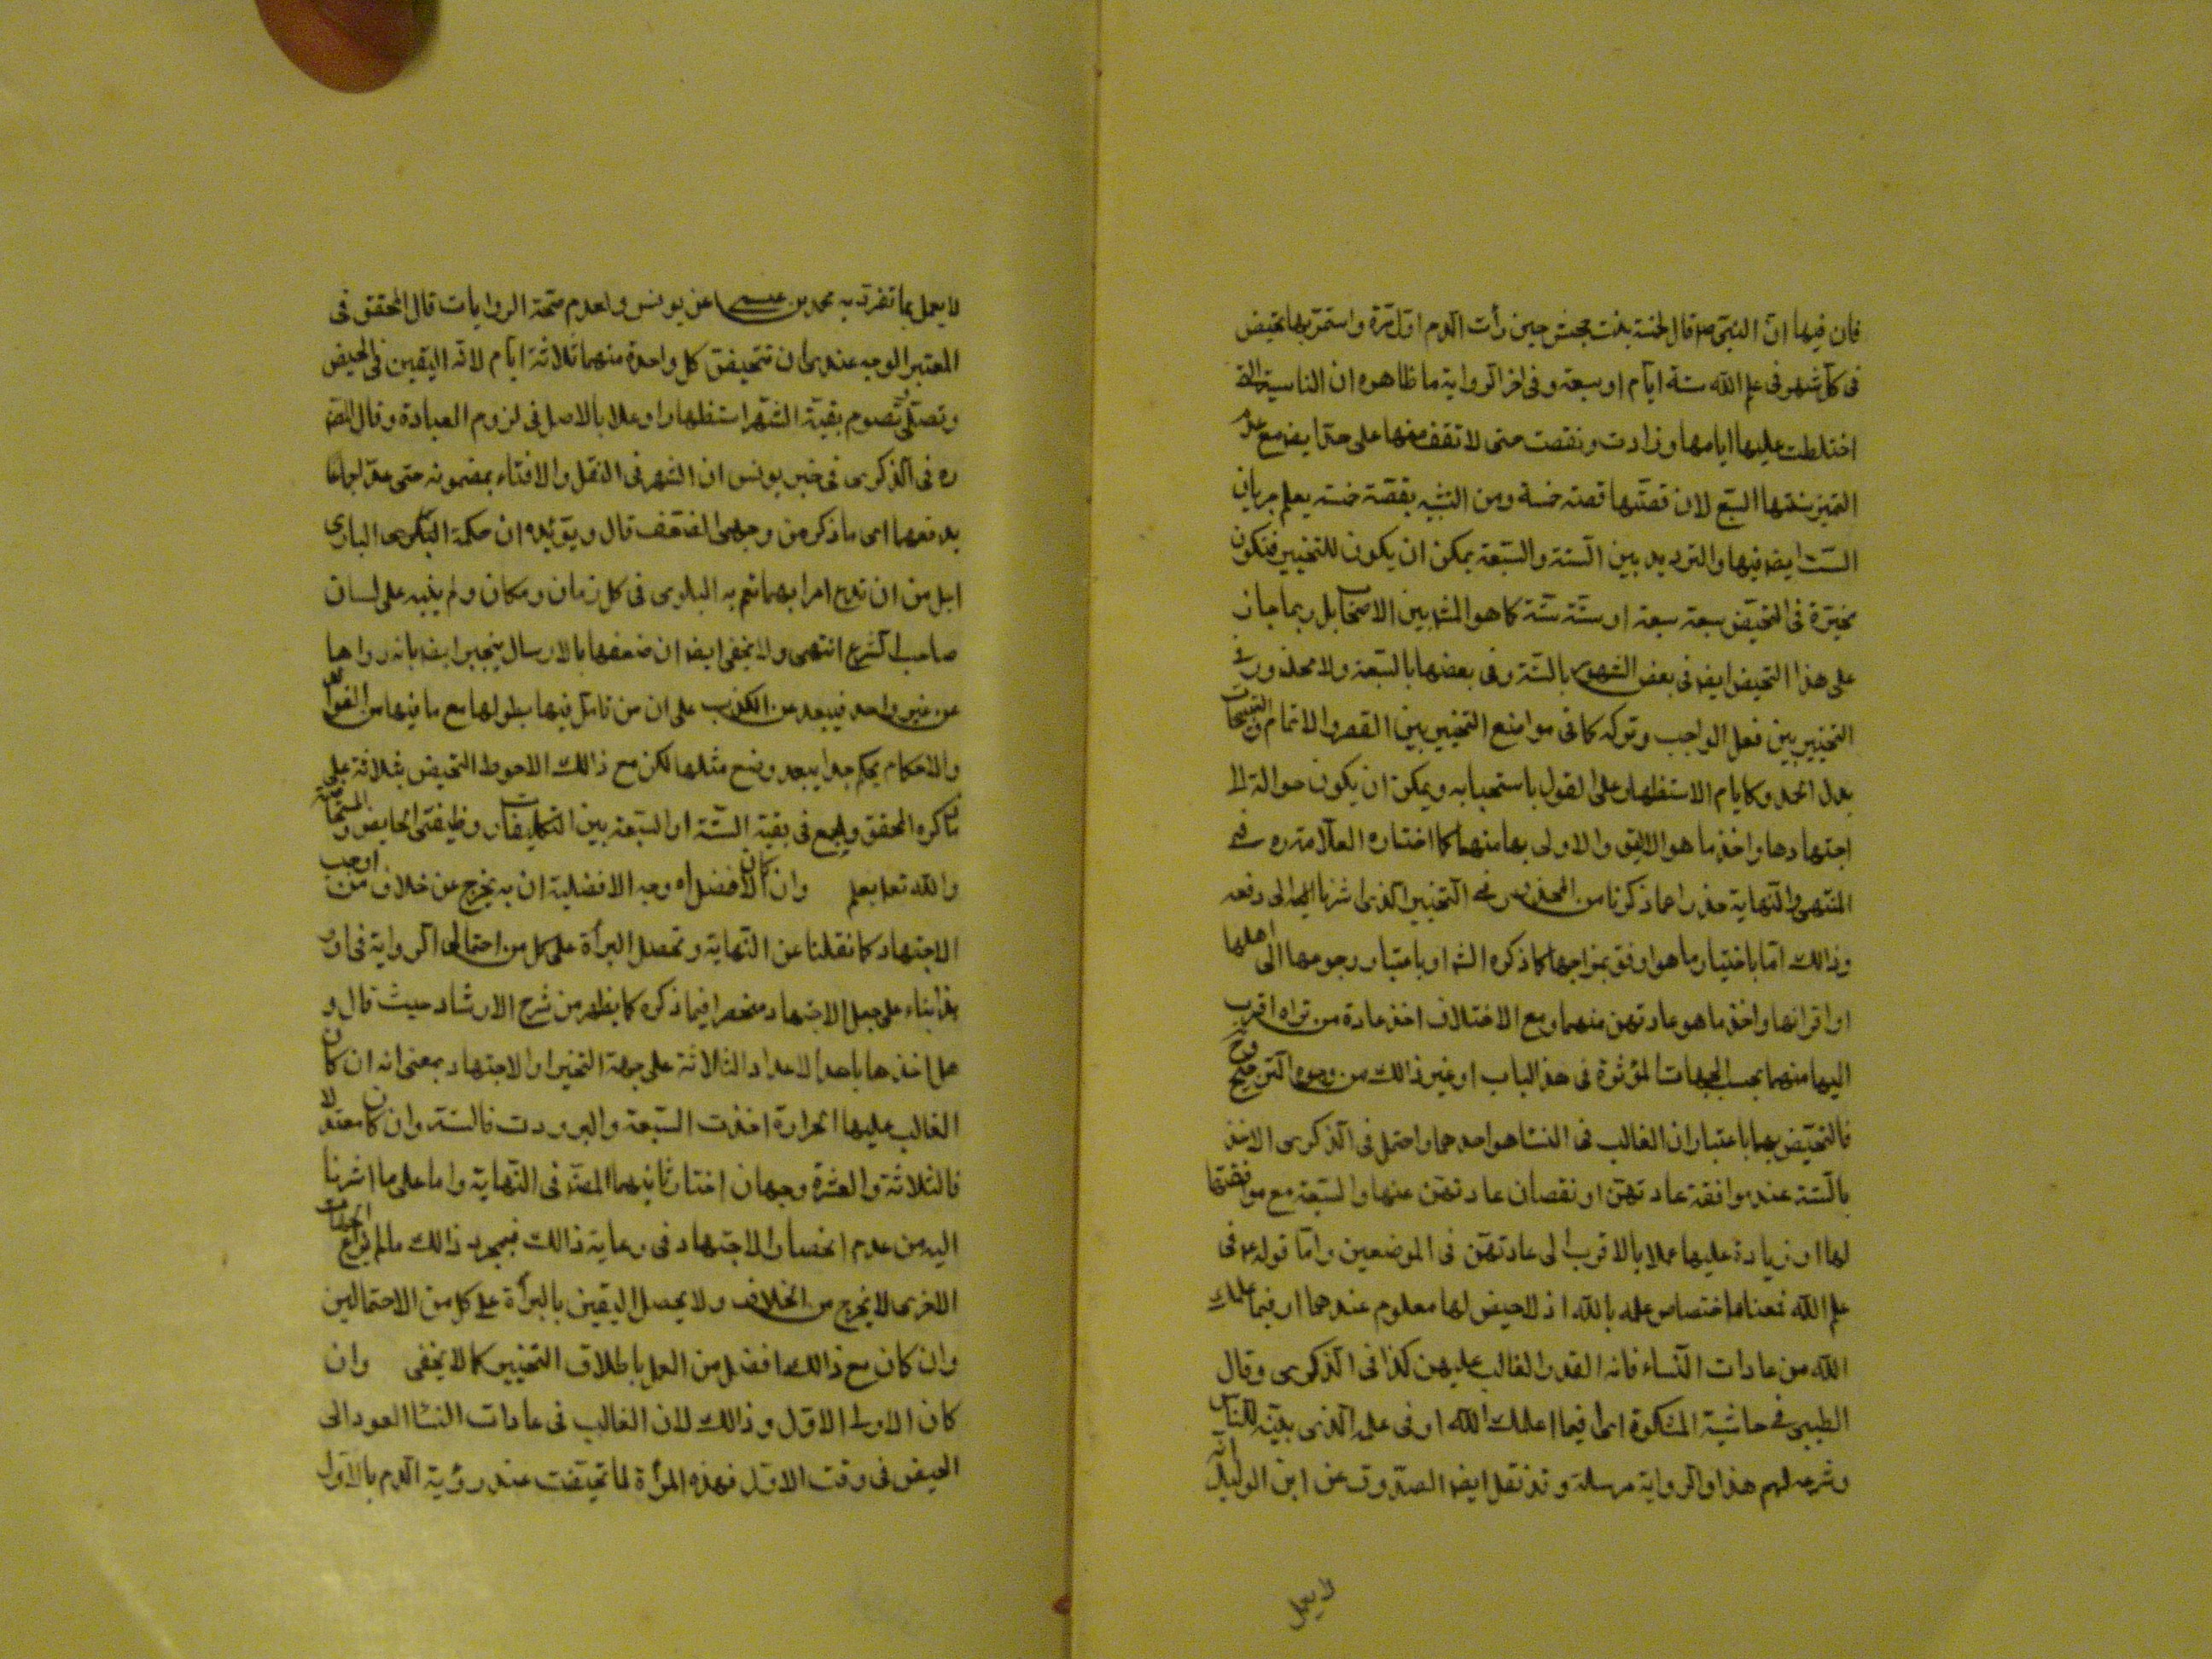 فان فيها ان النبي ص قال لحمنة بنت جحش حين رأت الدم اول مرة واستمر بها تحيض
في كل شهر في علم الله ستة ايام او سبعة وفي اخر الرواية ما ظاهره ان الناسية التي
اختلطت عليها ايامها وزادت ونقصت حتى لا تقف منها على حد ايض مع عدم
التميز سنتها السبع لان قصتها قصة حمنة ومن التشبيه بقصة حمنة يعلم جريان
الست ايض فيها والترديد بين الستة والسبعة يمكن ان يكون للتخيير فتكون
مخيرة في التحيض سبعة سبعة او ستة ستة كما هو المش بين الاصحاب بل ربما جاز
على هذا التحيض ايض في بعض الشهور بالستة وفي بعضها بالسبعة ولا محذور في
التخيير بين فعل الواجب وتركه كما في مواضع التخيير بين القصر والاتمام والتسبيحات
بدل الحمد وكايام الاستظهار على القول باستحبابه ويمكن ان يكون حوالة الى
اجتهادها واخذ ما هو الاليق والاولى بها منهما كما اختاره العلامة ره في
المنتهى والنهاية حذرا عما ذكرنا من المحذور في التخيير الذي اشرنا اليه الى دفعه
وذالك اما باختيار ما هو اوفق بمزاجها كما ذكره الش او باعتبار رجوعها الى اهلها
او اقرانها واخذ ما هو عادتهن منهما ومع الاختلاف اخذ عادة من تراه اقرب
اليها منهما بحسب الجهات المؤثرة في هذ الباب او غير ذالك من وجوه الترجيح
فالتحيض بهما باعتبار ان الغالب في النسا هو احدهما واحتمل في الذكرى الاخذ
بالستة عند موافقة عادتهن او نقصان عادتهن عنها والسبعة مع موافقتها
لها او زيادة عليها عملا بالاقرب الى عادتهن في الموضعين واما قوله ع في
علم الله فمعناه اختصاص علمه بالله اذ لا حيض لها معلوم عندهما او فيما علمك
الله من عادات النساء فانه القدر الغالب عليهن كذا في الذكرى وقال
الطيبي في حاشية المشكوة اى فيما اعلمك الله او في علم الذى بينه للناس
وشرعه لهم هذا والرواية مرسلة وقد نقل ايض الصدوق عن ابن الوليد انه
لا يعمل
لا يعمل بما تفرد به محمد بن عيسى عن يونس ولعدم صحة الروايات قال المحقق في
المعتبر الوجه عندى ان تتحيض كل واحدة منهما ثلاثة ايام لانه اليقين في الحيض
وتصلى وتصوم بقية الشهر استظهارا وعملا بالاصل في لزوم العبادة وقال المص
ره في الذكرى في خبر يونس ان الشهرة في النقل والافتاء بمضمونه حتى عد اجماعا
يدفعها اى ما ذكر من وجهى الضعف قال ويؤيده ان حكمة البارى
اجل من ان تدع امرا مبهما تعم به البلوى في كل زمان ومكان ولم يبينه على لسان
صاحب الشرع انتهى ولا يخفى ايض ان ضعفها بالارسال ينجبر ايض بانه رواها
عن غير واحد فيبعد عن الكذب على ان من تامل فيها بطولها مع ما فيها من الفوائد
والاحكام يحكم جدا ببعد وضع مثلها لكن مع ذالك الاحوط التحيض بثلاثة على
ما ذكره المحقق ويجمع في بقية الستة او السبعة بين التكليفات وظيفتى الحايض والمستحاضة
والله تعا يعلم وان كان الافضل اه وجه الافضلية ان به يخرج عن خلاف من اوجب
الاجتهاد كما نقلنا عن النهاية وتحصل البرأة على كل من احتمالى الرواية في او
هذ بناء على جعل الاجتهاد منحصرا فيما ذكره كما يظهر من شرح الارشاد حيث قال و
هل اخذها باحد الاعداد الثلاثة على جهة التخير او الاجتهاد بمعنى انه ان كان
الغالب عليها الحرارة اخذت السبعة والبرودت فالستة وان كان معتدلا
فالثلاثة والعشرة وجهان اختار ثانيهما المص في النهاية واما على ما اشرنا
اليه من عدم انحصار الاجتهاد في رعاية ذالك فبمجرد ذالك ما لم يراع الجهات
الاخرى لا يخرج من الخلاف ولا يحصل اليقين بالبرأة على كل من الاحتمالين
وان كان مع ذالك افضل من العمل باطلاق التخيير كما لا يخفى وان
كان الاولى الاول وذالك لان الغالب في عادات النسا العود الى
الحيض في وقت الاول فهذه المرأة لما تحيضت عند رؤية الدم بالاول